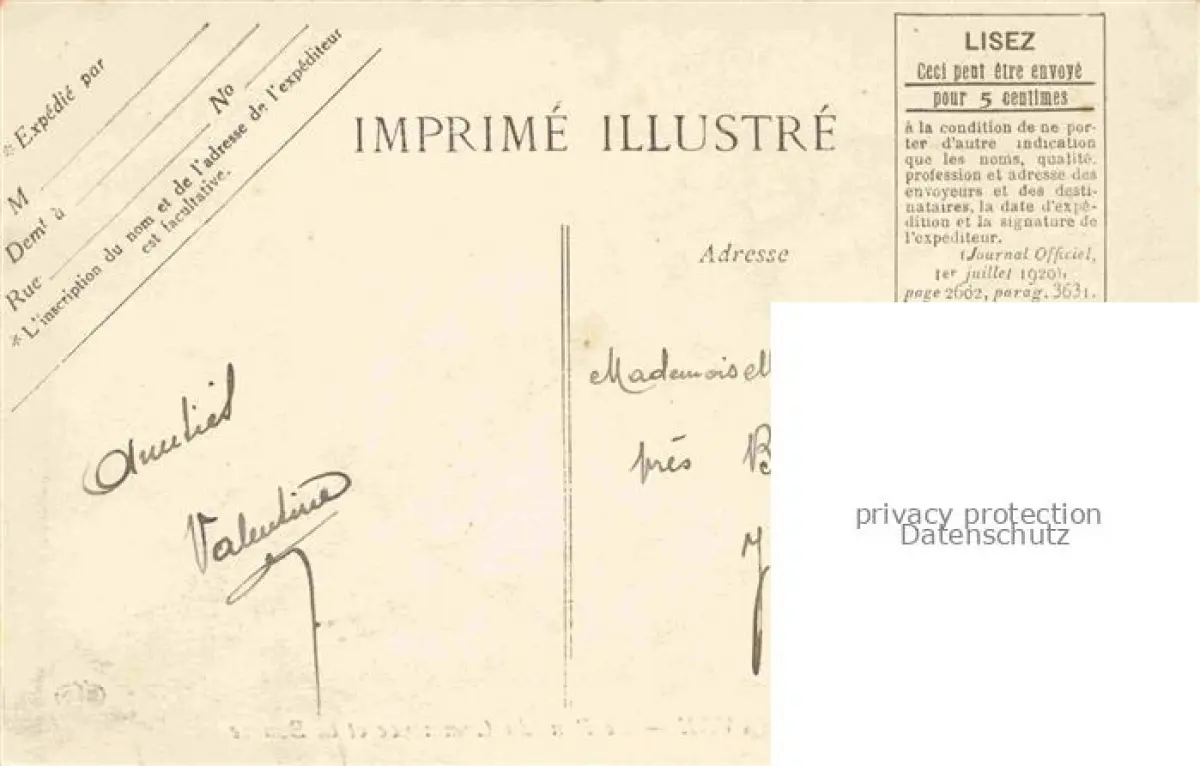 * Expédié par
M
Demt à
Rue Nº
* L'inscription du nom et de l'adresse de l'expéditeur
est facultative.
IMPRIMÉ ILLUSTRÉ
LISEZ
Ceci peut être envoyé
pour 5 centimes
à la condition de ne por-
ter d'autre indication
que les noms, qualité,
profession et adresse des
envoyeurs et des desti-
nataires, la date d'expé-
dition et la signature de
l'expéditeur.
(Journal Officiel,
1er juillet 1920),
page 2662, parag. 3631.
Adresse
Mademoisell
près B
Amitiés
Valentine
privacy protection
Datenschutz